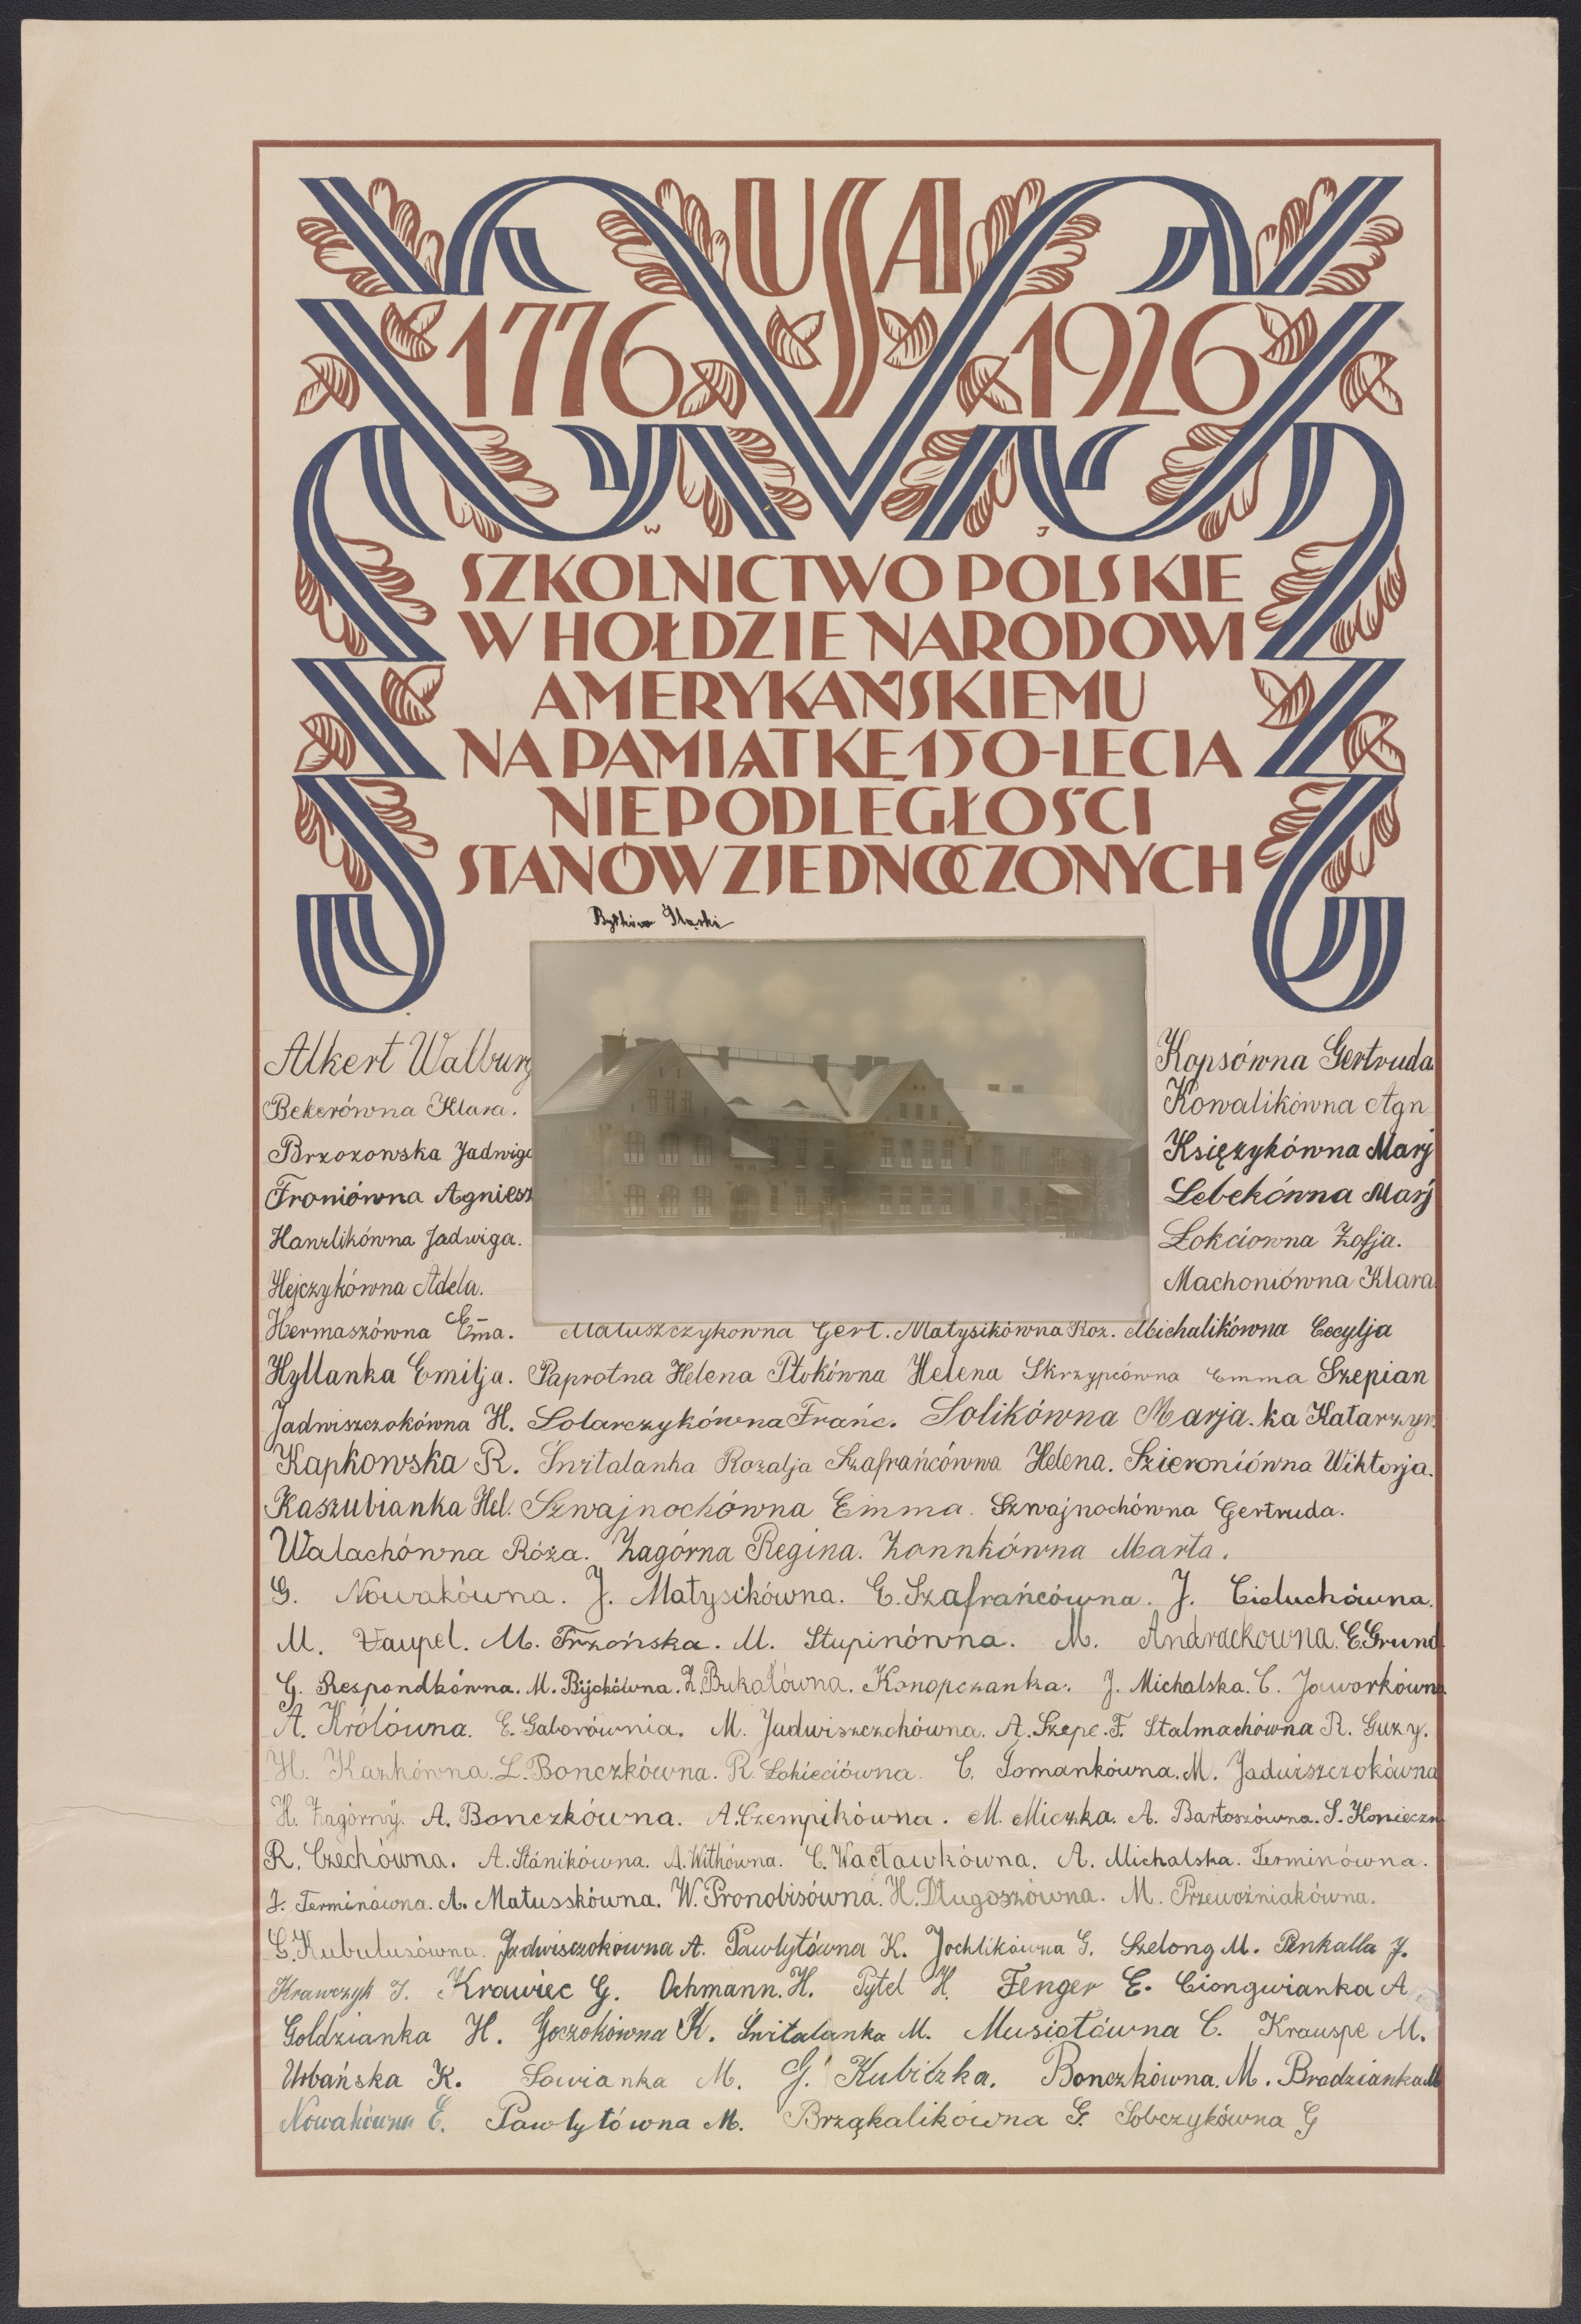 USA
1776 1926
W J
SZKOLNICTWO POLSKIE
W HOŁDZIE NARODOWI
AMERYKAŃSKIEMU
NA PAMIĄTKĘ 150-LECIA
NIEPODLEGŁOŚCI
STANÓW ZJEDNOCZONYCH
Bytków Śląski
Alkert Walburg
Bekerówna Klara.
Brzozowska Jadwiga
Froniówna Agniesz
Hanzlikówna Jadwiga.
Hejczykówna Adela.
Kopsówna Gertruda
Kowalikówna Agn
Księżykówna Marj
Lebekówna Marj
Łokciówna Zofja.
Machoniówna Klara
Hermaszówna Em̄a. Matuszczykówna Gert. Matysikówna Roz. Michalikówna Cecylja
Hyllanka Emilja. Paprotna Helena Ptokówna Helena Skrzypcówna Emma Szepian
Jadwiszczokówna H. Solarczykówna Franc. Solikówna Marja. ka Katarzyn
Kapkowska R. Śwítalanka Rozalja Szafrańcówna Helena. Szieroniówna Wiktorja.
Kaszubianka Hel. Szwajnochówna Emma. Szwajnochówna Gertruda.
Walachówna Róża. Zagórna Regina. Zonnkówna Marta.
G. Nowakówna. J. Matysikówna. E. Szafrańcówna. J. Cieluchówna.
M. Zaupel. M. Trzońska. M. Stupinówna. M. Andrackowna. E. Grund
G. Respondkówna. M. Bijokówna. Z. Bukałówna. Konopczanka. J. Michalska. C. Jaworkówna
A. Królówna. E. Gaborównia. M. Judwiszczokówna. A. Szepe. F. Stalmachówna R. Guzy.
H. Kazkówna. L. Bonczkówna. R. Łokieciówna. C. Tomankówna. M. Jadwiszczokówna
H. Zagórny. A. Bonczkówna. A. Czempikówna. M. Miczka. A. Bartoszówna. S. Konieczn
R. Czechówna. A. Stánikówna. A. Withówna. C. Wacławkówna. A. Michalska. Terminówna.
J. Terminówna. A. Matusskówna. W. Pronobisówna. H. Długoszówna. M. Przewoźniakówna.
C. Kubulusówna. Jadwisczokówna A. Pawlytówna K. Jochlikówna G. Szelong M. Penkalla J.
Krawczyk J. Krawiec G. Ochmann. H. Pytel H. Fenger E. Ciongwianka A
Goldzianka H. Goczokówna K. Świtalanka M. Musiołówna C. Krauspe M.
Urbańska K. Sowianka M. G. Kubiczka. Bonczkówna. M. Brodzianka M
Nowakówna E. Pawlytówna M. Brząkalikówna G. Sobczykówna G